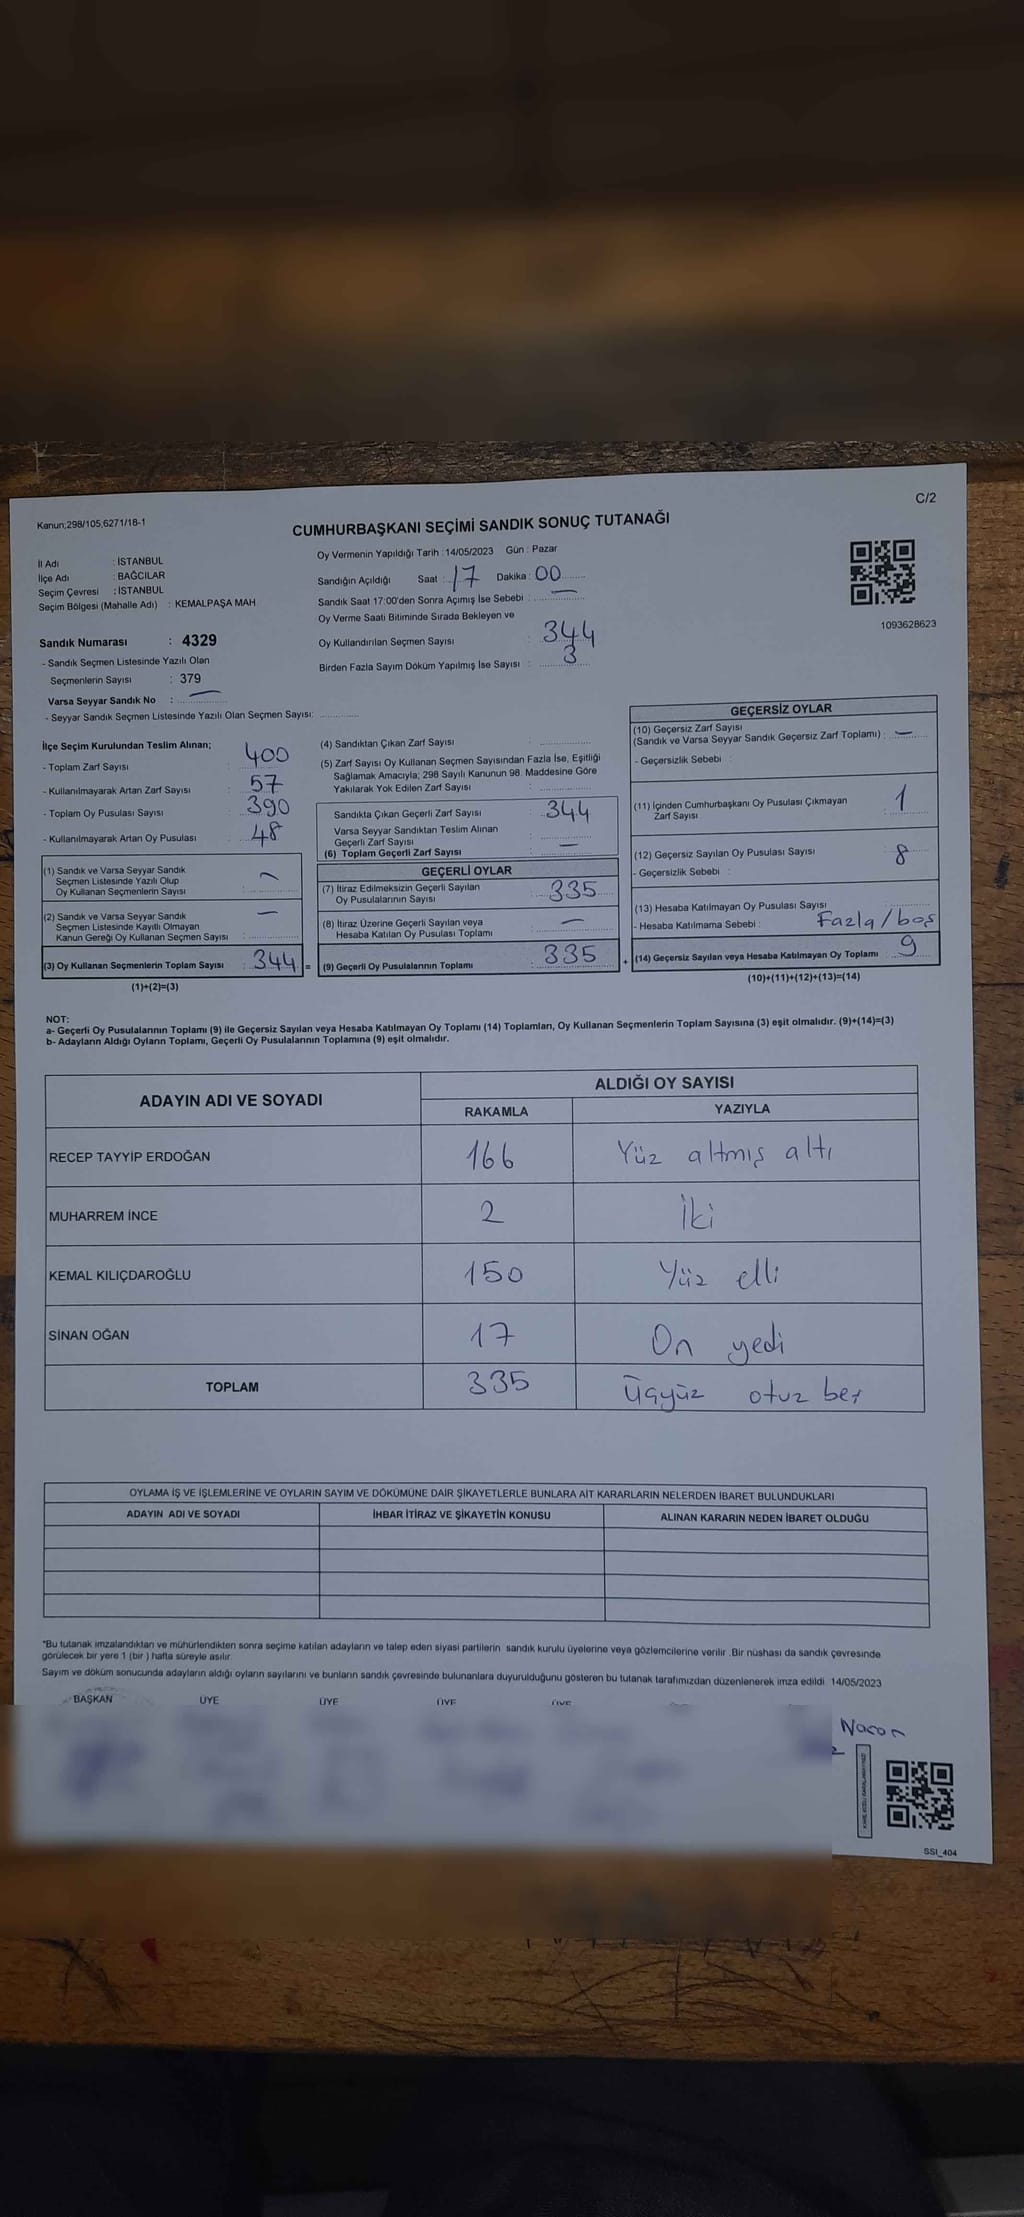 C/2
Kanun;298/105,6271/18-1
CUMHURBAŞKANI SEÇİMİ SANDIK SONUÇ TUTANAĞI
İl Adı : İSTANBUL
İlçe Adı : BAĞCILAR
Seçim Çevresi : İSTANBUL
Seçim Bölgesi (Mahalle Adı) : KEMALPAŞA MAH
Oy Vermenin Yapıldığı Tarih : 14/05/2023 Gün : Pazar
Sandığın Açıldığı Saat : 17 Dakika : 00
Sandık Saat 17:00'den Sonra Açımış İse Sebebi : —
Oy Verme Saati Bitiminde Sırada Bekleyen ve
Oy Kullandırılan Seçmen Sayısı : 344
Birden Fazla Sayım Döküm Yapılmış İse Sayısı : 3
1093628623
Sandık Numarası : 4329
- Sandık Seçmen Listesinde Yazılı Olan
Seçmenlerin Sayısı : 379
Varsa Seyyar Sandık No : —
- Seyyar Sandık Seçmen Listesinde Yazılı Olan Seçmen Sayısı:
İlçe Seçim Kurulundan Teslim Alınan;
- Toplam Zarf Sayısı : 400
- Kullanılmayarak Artan Zarf Sayısı : 57
- Toplam Oy Pusulası Sayısı : 390
- Kullanılmayarak Artan Oy Pusulası : 48
(1) Sandık ve Varsa Seyyar Sandık
Seçmen Listesinde Yazılı Olup
Oy Kullanan Seçmenlerin Sayısı : —
(2) Sandık ve Varsa Seyyar Sandık
Seçmen Listesinde Kayıtlı Olmayan
Kanun Gereği Oy Kullanan Seçmen Sayısı : —
(3) Oy Kullanan Seçmenlerin Toplam Sayısı : 344 =
(1)+(2)=(3)
(4) Sandıktan Çıkan Zarf Sayısı :
(5) Zarf Sayısı Oy Kullanan Seçmen Sayısından Fazla İse, Eşitliği
Sağlamak Amacıyla; 298 Sayılı Kanunun 98. Maddesine Göre
Yakılarak Yok Edilen Zarf Sayısı :
Sandıkta Çıkan Geçerli Zarf Sayısı : 344
Varsa Seyyar Sandıktan Teslim Alınan
Geçerli Zarf Sayısı : —
(6) Toplam Geçerli Zarf Sayısı :
GEÇERLİ OYLAR
(7) İtiraz Edilmeksizin Geçerli Sayılan
Oy Pusulalarının Sayısı : 335
(8) İtiraz Üzerine Geçerli Sayılan veya
Hesaba Katılan Oy Pusulası Toplamı : —
(9) Geçerli Oy Pusulalarının Toplamı : 335 +
GEÇERSİZ OYLAR
(10) Geçersiz Zarf Sayısı
(Sandık ve Varsa Seyyar Sandık Geçersiz Zarf Toplamı) : —
- Geçersizlik Sebebi :
(11) İçinden Cumhurbaşkanı Oy Pusulası Çıkmayan
Zarf Sayısı : 1
(12) Geçersiz Sayılan Oy Pusulası Sayısı : 8
- Geçersizlik Sebebi :
(13) Hesaba Katılmayan Oy Pusulası Sayısı
- Hesaba Katılmama Sebebi : Fazla/boş
(14) Geçersiz Sayılan veya Hesaba Katılmayan Oy Toplamı : 9
(10)+(11)+(12)+(13)=(14)
NOT:
a- Geçerli Oy Pusulalarının Toplamı (9) ile Geçersiz Sayılan veya Hesaba Katılmayan Oy Toplamı (14) Toplamları, Oy Kullanan Seçmenlerin Toplam Sayısına (3) eşit olmalıdır. (9)+(14)=(3)
b- Adayların Aldığı Oyların Toplamı, Geçerli Oy Pusulalarının Toplamına (9) eşit olmalıdır.
ADAYIN ADI VE SOYADI ALDIĞI OY SAYISI
RAKAMLA YAZIYLA
RECEP TAYYİP ERDOĞAN 166 Yüz altmış altı
MUHARREM İNCE 2 İki
KEMAL KILIÇDAROĞLU 150 Yüz elli
SİNAN OĞAN 17 On yedi
TOPLAM 335 Üçyüz otuz beş
OYLAMA İŞ VE İŞLEMLERİNE VE OYLARIN SAYIM VE DÖKÜMÜNE DAİR ŞİKAYETLERLE BUNLARA AİT KARARLARIN NELERDEN İBARET BULUNDUKLARI
ADAYIN ADI VE SOYADI İHBAR İTİRAZ VE ŞİKAYETİN KONUSU ALINAN KARARIN NEDEN İBARET OLDUĞU
*Bu tutanak imzalandıktan ve mühürlendikten sonra seçime katılan adayların ve talep eden siyasi partilerin sandık kurulu üyelerine veya gözlemcilerine verilir .Bir nüshası da sandık çevresinde
görülecek bir yere 1 (bir ) hafta süreyle asılır.
Sayım ve döküm sonucunda adayların aldığı oyların sayılarını ve bunların sandık çevresinde bulunanlara duyurulduğunu gösteren bu tutanak tarafımızdan düzenlenerek imza edildi. 14/05/2023
BAŞKAN ÜYE ÜYE ÜYE ÜYE
SSI_404